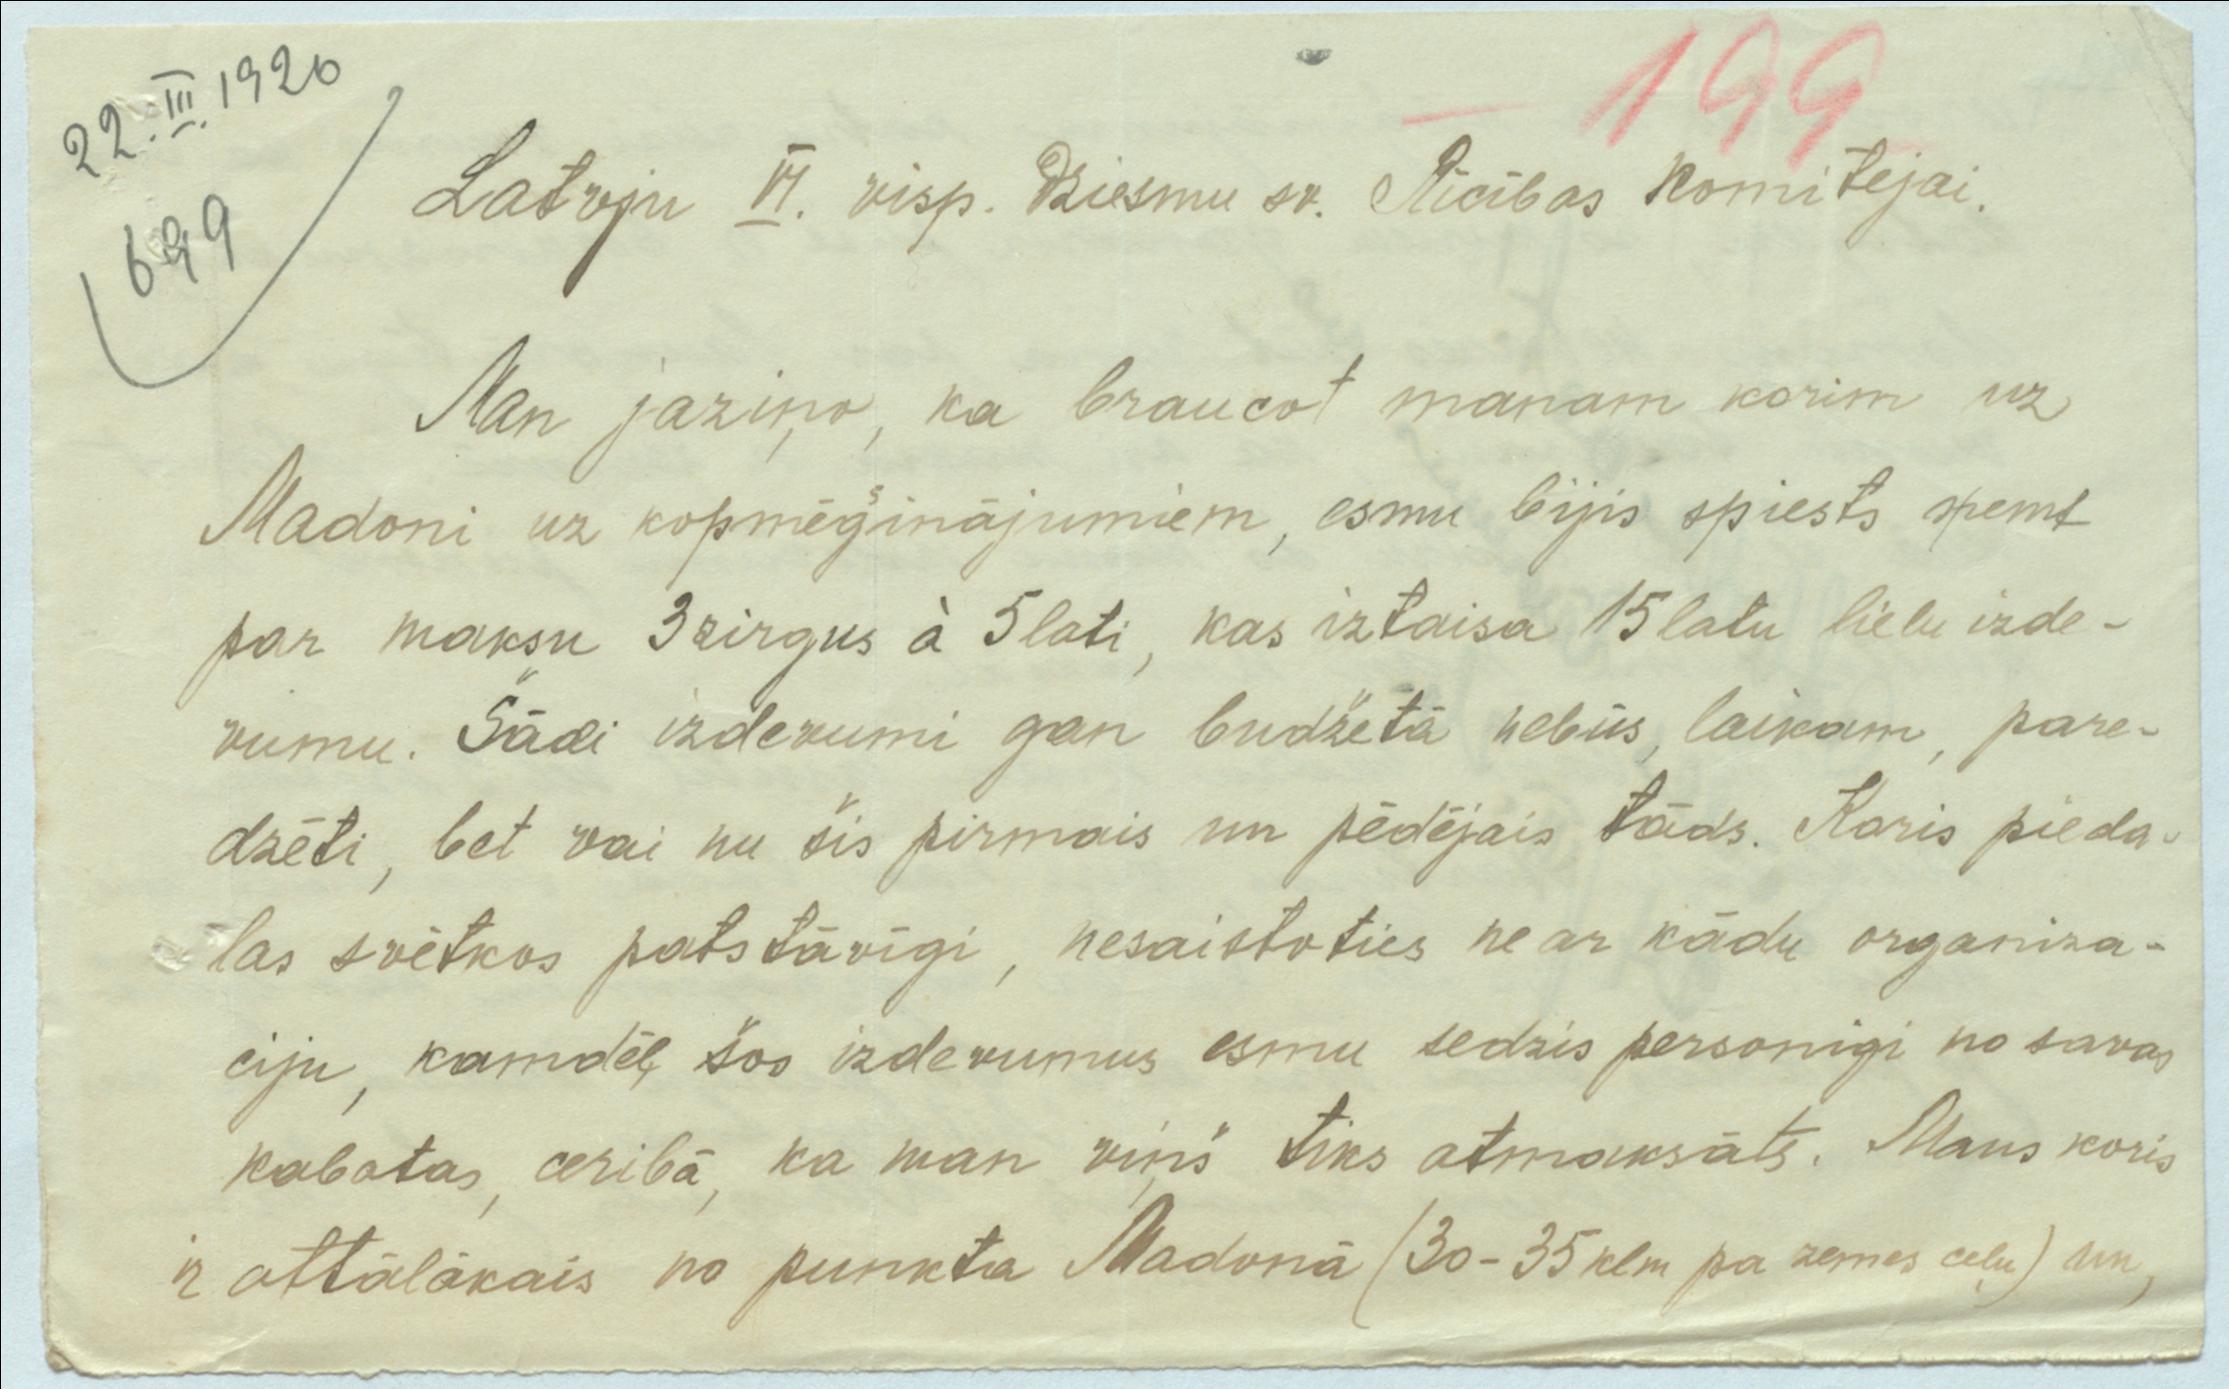 22.III.1926
699
199
Latvju VI. visp. Dziesmu sv. Rīcības Komitejai.
Man jaziņo, ka braucot manam korim uz
Madoni uz kopmēģinājumiem, esmu bijis spiests ņemt
par maksu 3 zirgus à 5 lati, kas iztaisa 15 latu lielu izde-
vumu. Šādi izdevumi gan budžetā nebūs, laikam, pare-
dzēti, bet vai nu šis pirmais un pēdējais tāds. Koris pieda-
las svētkos patstāvīgi, nesaistoties ne ar kādu organiza-
ciju, kamdēļ šos izdevumus esmu sedzis personigi no savas
kabatas, ceribā, ka man viņš tiks atmaksāts. Mans koris
ir attālākais no punkta Madonā (30-35 klm pa zemes ceļu) un,